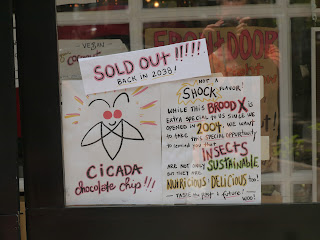 VEGAN
SOLD OUT!!!!!
BACK IN 2038!
CICADA
chocolate chip!!!
NOT A
SHOCK FLAVOR!
WHILE THIS BROOD X IS
EXTRA SPECIAL TO US SINCE WE
OPENED IN 2004, WE WANT
TO TAKE THIS SPECIAL OPPORTUNITY
TO REMIND YOU THAT
INSECTS
ARE NOT ONLY SUSTAINABLE
BUT THEY ARE
NUTRICIOUS & DELICIOUS too!
TASTE THE FUTURE!
WOO!